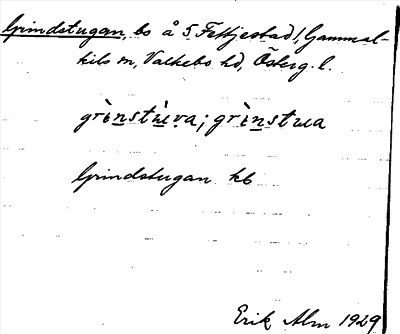 Grindstugan, bs å S. Fettjestad, Gammal-
kils sn, Valkebo hd, Österg. l.
grìnstùva; grìnstua
Grindstugan kb
Erik Alm 1929